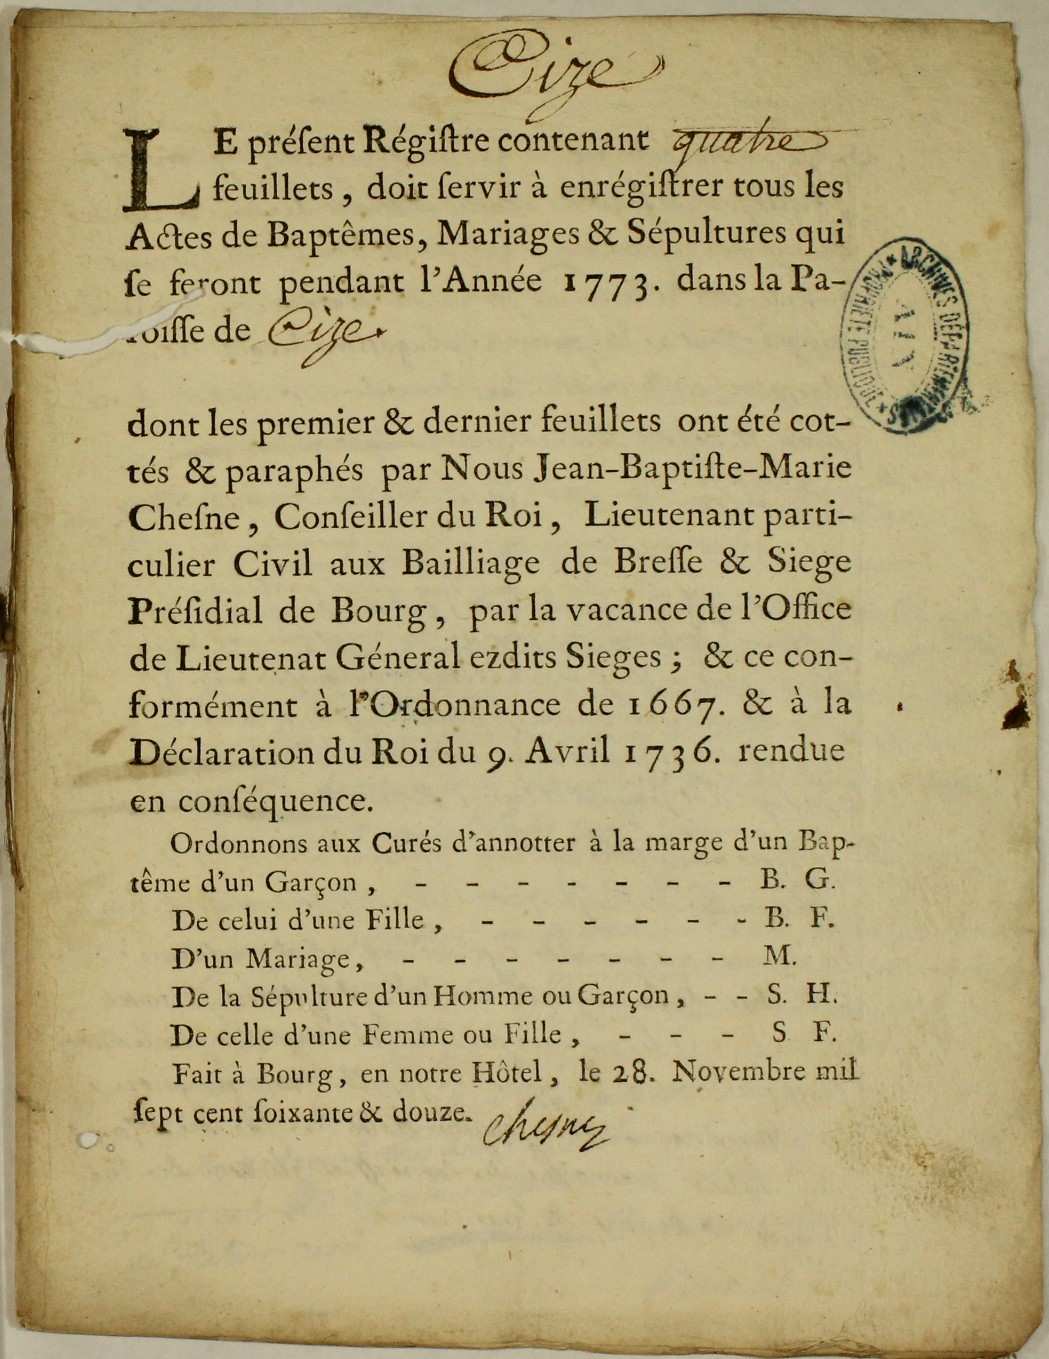 Cize
LE préſent Régiſtre contenant quatre
feuillets, doit ſervir à enrégiſtrer tous les
Actes de Baptêmes, Mariages & Sépultures qui
ſe feront pendant l'Année 1773. dans la Pa-
roiſſe de Cize.
ARCHIVES DÉPARTEMENTALES
PROPRIÉTÉ PUBLIQUE
AIN
dont les premier & dernier feuillets ont été cot-
tés & paraphés par Nous Jean-Baptiſte-Marie
Cheſne, Conſeiller du Roi, Lieutenant parti-
culier Civil aux Bailliage de Breſſe & Siege
Préſidial de Bourg, par la vacance de l'Office
de Lieutenat Géneral ezdits Sieges; & ce con-
formément à l'Ordonnance de 1667. & à la
Déclaration du Roi du 9. Avril 1736. rendue
en conſéquence.
Ordonnons aux Curés d'annotter à la marge d'un Bap-
tême d'un Garçon, - - - - - - - B. G.
De celui d'une Fille, - - - - - - B. F.
D'un Mariage, - - - - - - - M.
De la Sépulture d'un Homme ou Garçon, - - S. H.
De celle d'une Femme ou Fille, - - - S F.
Fait à Bourg, en notre Hôtel, le 28. Novembre mil
ſept cent ſoixante & douze. Chesne